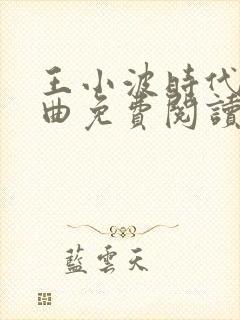 王小波時代
曲免費閱讀
藍雲天